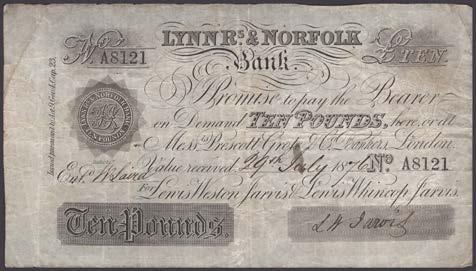 No A8121
LYNN Rs. & NORFOLK
£ TEN
Bank.
I Promise to pay the Bearer
on Demand TEN POUNDS, here, or at
Messrs Prescott Grote & Co. Bankers, London.
Value received 29th July 1876 No A8121
Entd
For Lewis Weston Jarvis & Lewis Whincop Jarvis.
Ten Pounds.
L W Jarvis